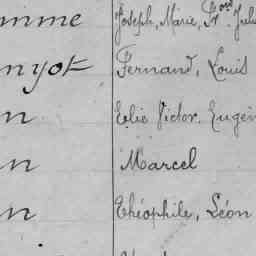 mme Joseph, Marie, Frçois Jules
nyot Fernand, Louis
n Elie Victor, Eugèn
n Marcel
n Théophile, Léon